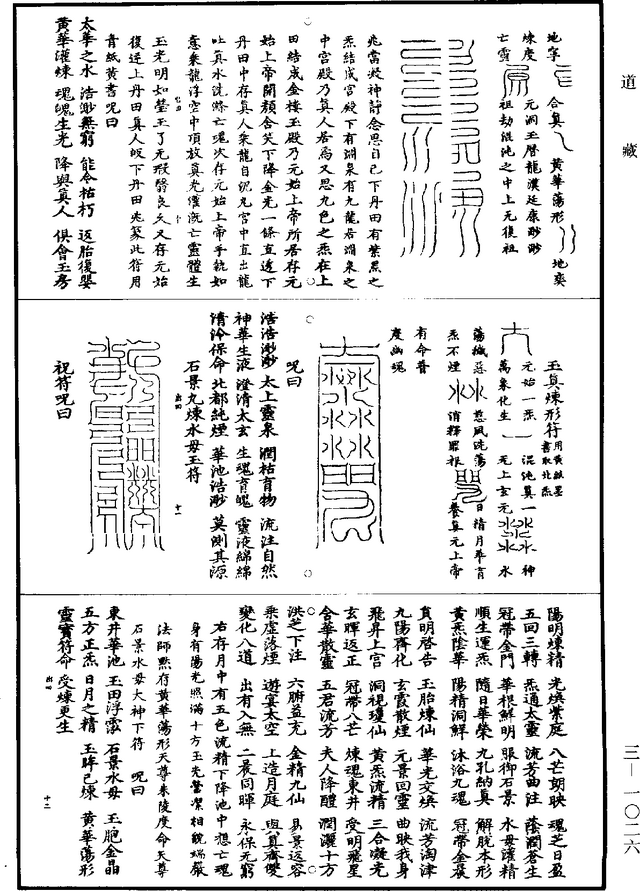 道藏
地寧 合真 黃華蕩形 地奕
煉度 元洞玉曆龍漢延康眇眇
亡靈 祖劫混沌之中上元復祖
兆當凝神靜念思自己下丹田有紫黑之
炁結成宮殿下有淵泉有九龍居淵泉之
中宮殿乃真人居焉又思九色之炁在上
田結成金樓玉殿乃元始上帝所居存元
始上帝開顏含笑下降金光一條直透下
丹田中存真人乘龍自絳宮中直出龍
吐真水洗滌亡魂次存元始上帝手執如
意乘龍浮空中項放真光亡靈體生
玉光明如瑩玉了無瑕翳良久又存元始
復上丹田真人皈下丹田先篆此符月
青紙黃書呪曰
太華之水 浩渺無窮 能令枯朽 返胎復嬰
黃華灌煉 魂魄生光 降與真人 俱會玉房
玉真煉形符 用黃紙墨書取北炁
元始一炁 混沌真一 神
萬象化生 元上玄元 水
蕩穢 惠風洗蕩 日精月華育
炁不煙 消釋罪根 養真元上帝
有命普
度幽魂
呪曰
浩浩渺渺 太上靈泉 潤枯育物 流注自然
神華生液 澄清太玄 生魂育魄 靈液綿綿
清泠保命 北都純煙 華池浩渺 莫測其源
石景九煉水母玉符
十一
祝符呪曰
陽明煉精 光煥紫庭 八芒朗映 魂芝日盈
五回三轉 炁通太靈 流芳曲注 蔭潤蒼生
冠帶金門 華根鮮明 服御石景 水母灌精
順生運炁 隨日華榮 九孔納真 解脫本形
黃炁陰華 陽精洞鮮 沐浴九魂 冠帶金晨
真明啓告 玉胎煉仙 華光交煥 流芳淘津
九陽齊化 玄霞散煙 元景回靈 曲映我身
飛昇上宮 洞視瓊仙 黃炁流精 三合凝光
玄暉返正 冠帶八芒 煉魂東井 受明飛星
含華散靈 五君流芳 夫人降醴 潤灑十方
洪芝下注 六腑益充 金精九仙 易景返容
乘虛落煙 遊宴太空 上造月庭 與真齊雙
變化八道 出有入無 二晨同暉 永保元窮
右存月中有五色流精下降池中想亡魂
身有陽光照滿十方玉光瑩潔相貌端嚴
法師默存黃華蕩形天尊朱陵度命天尊
石景水母大神下符 呪曰
東井華池 玉田浮靄 石景水母 玉胞金晶
五方正炁 日月之精 玉眸已煉 黃華蕩形
靈寶符命 受煉更生
十二
三一一〇二六